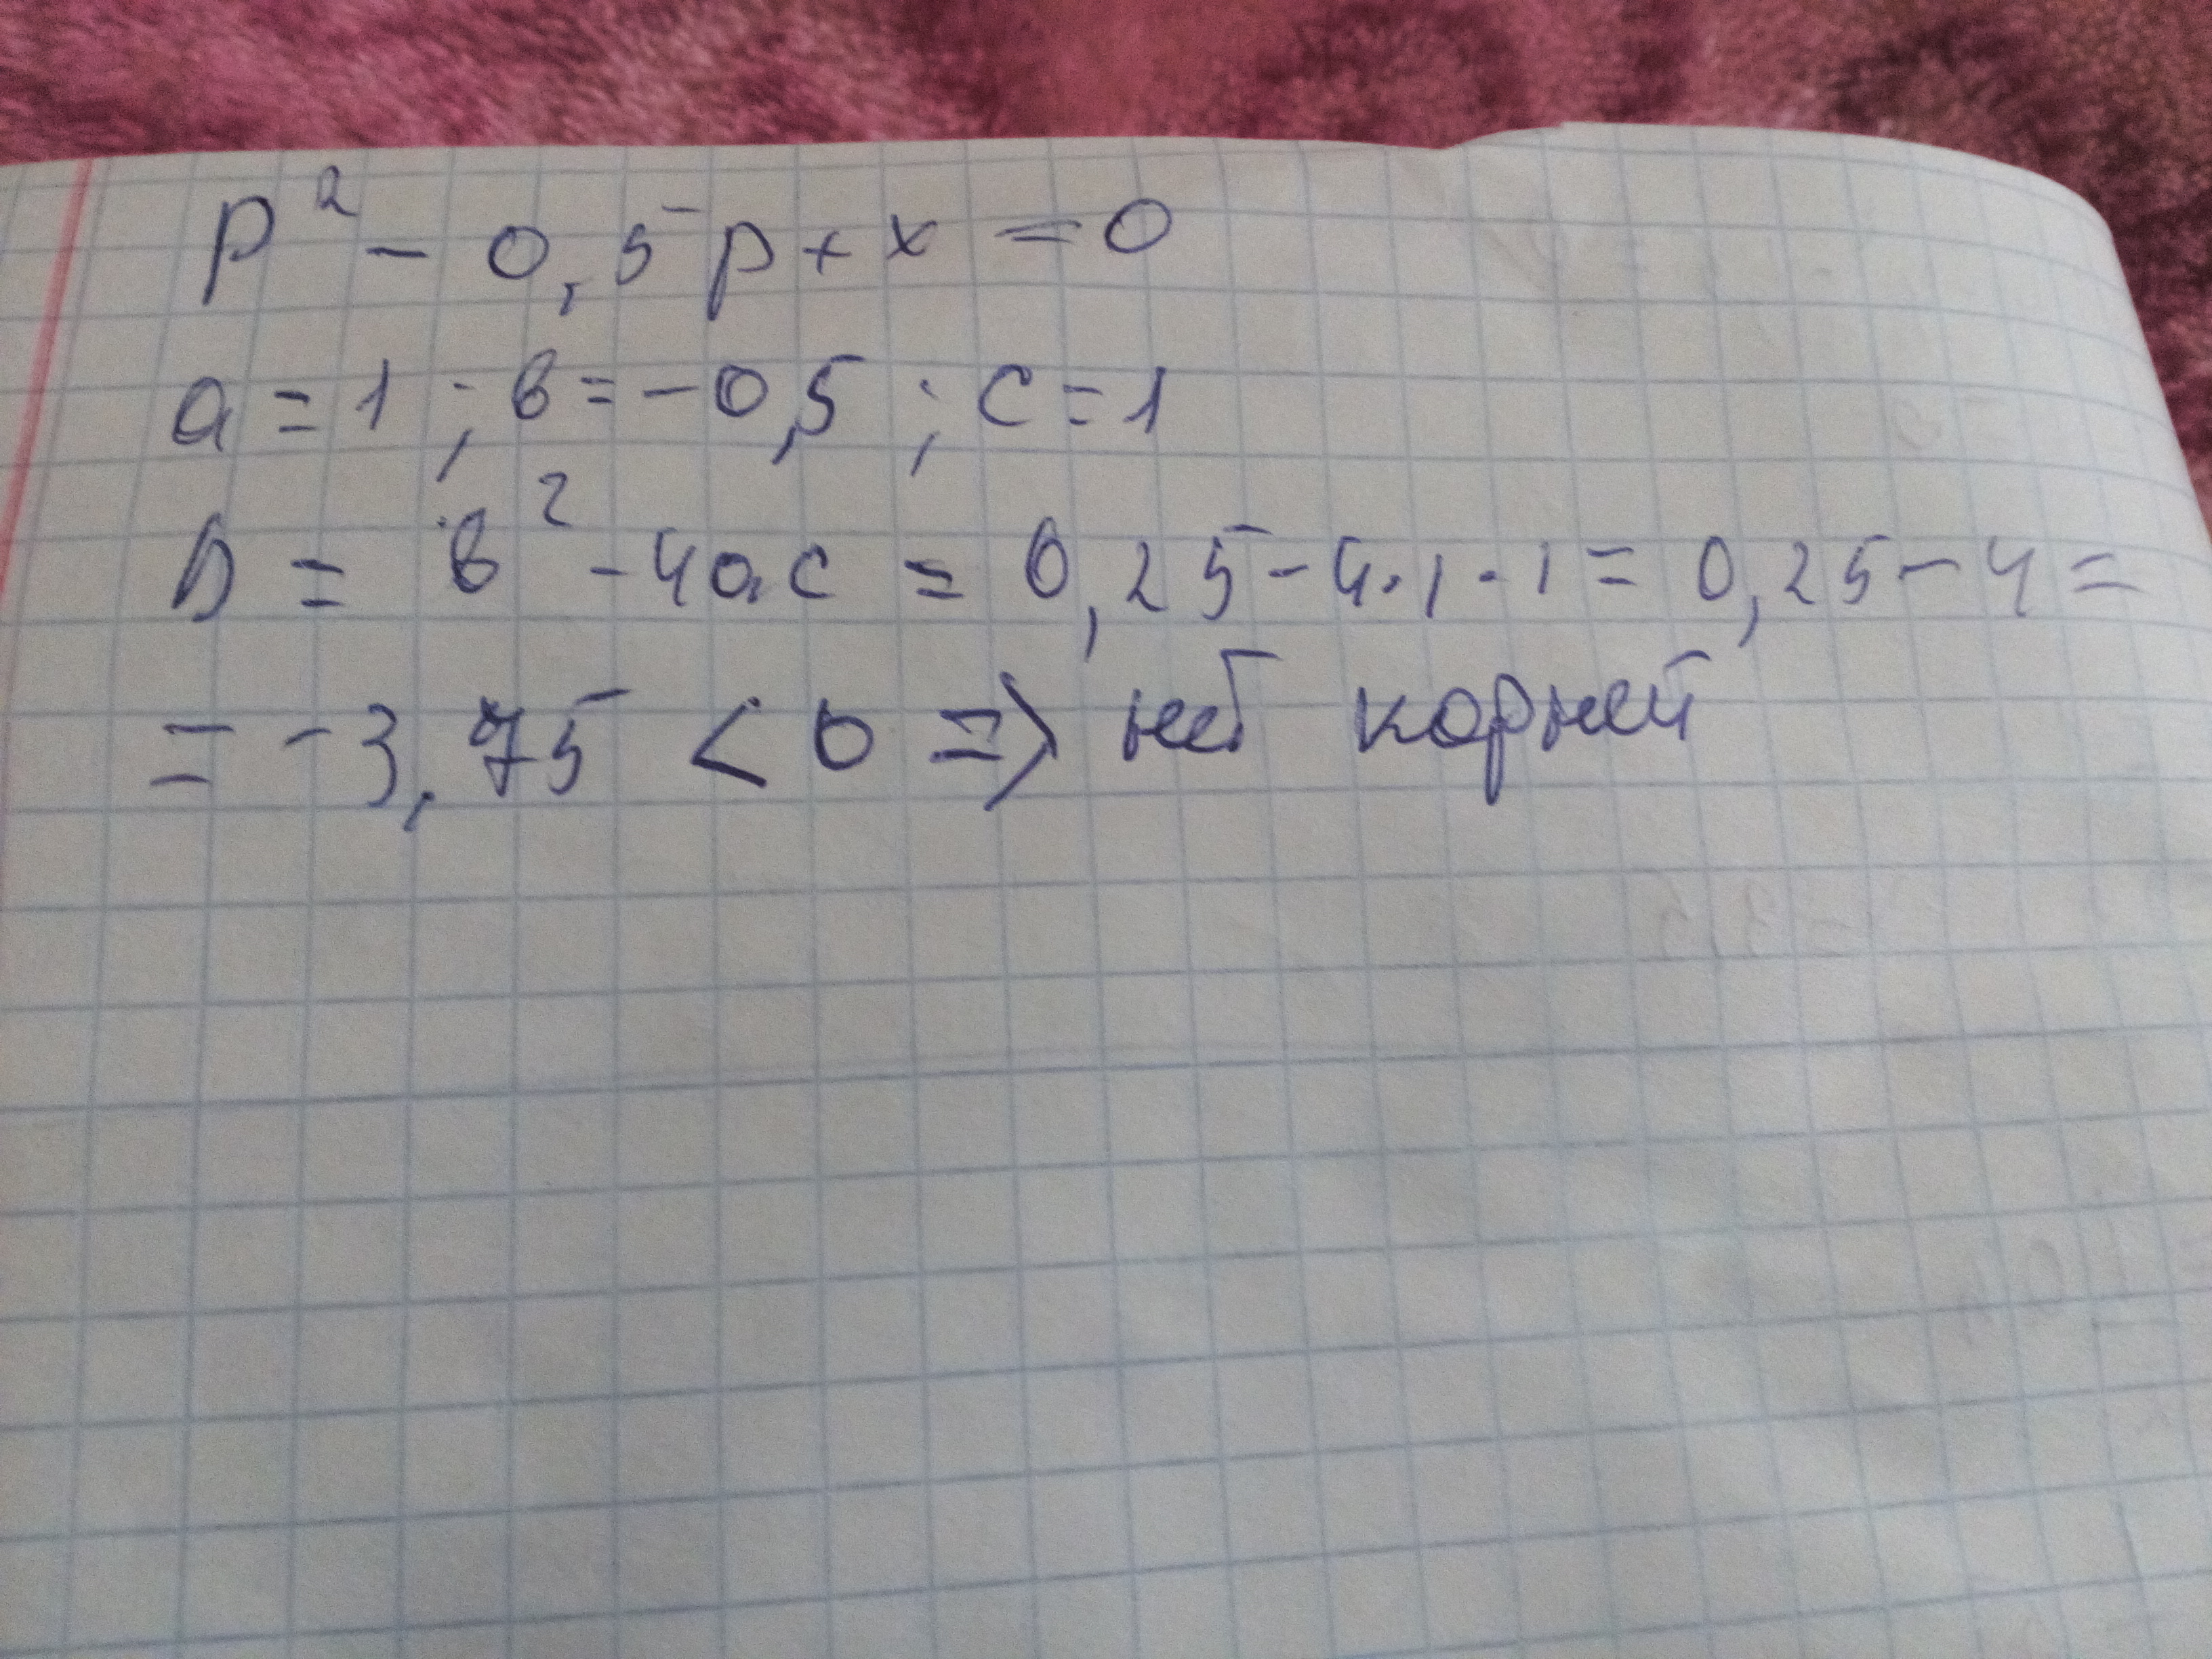 p² - 0,5p + x = 0
a = 1 ; в = -0,5 ; c = 1
D = в² - 4ac = 0,25 - 4·1·1 = 0,25 - 4 =
= -3,75 < 0 => нет корней